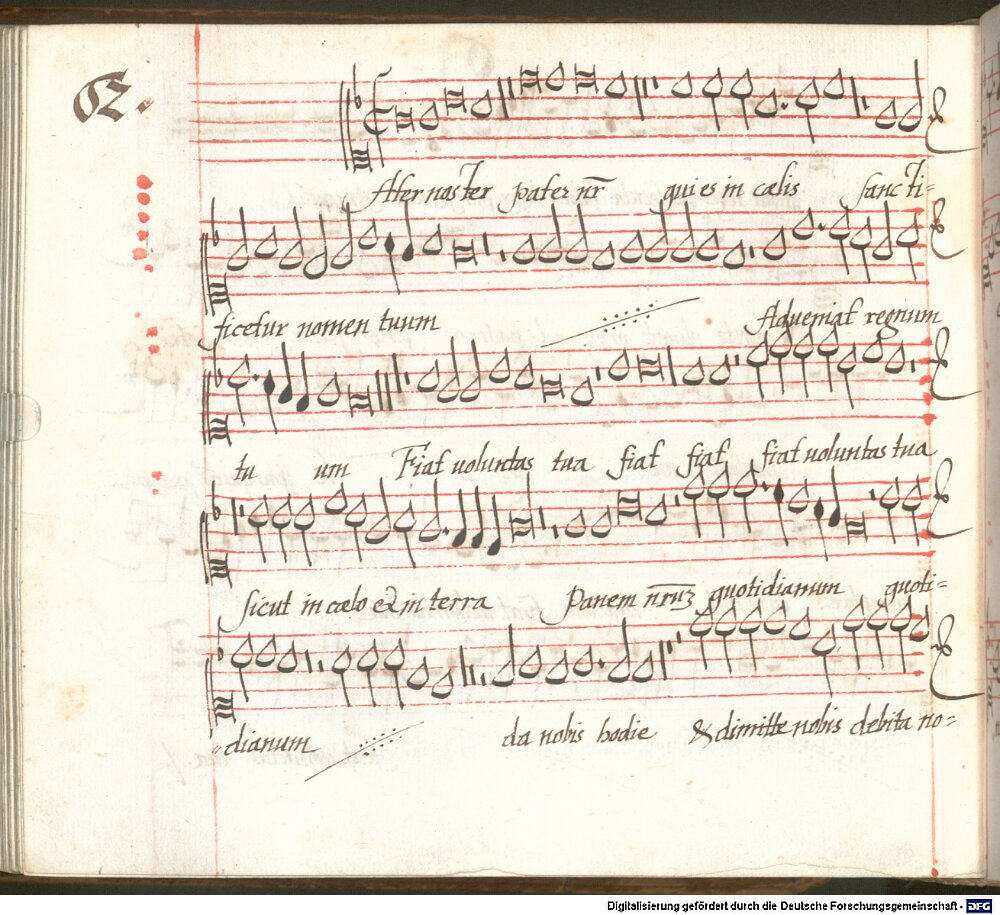 Ater noster pater nr̄ qui es in cælis sancti=
ficetur nomen tuum Adueniat regnum
tu um Fiat uoluntas tua fiat fiat fiat uoluntas tua
sicut in cœlo et in terra Panem nr̄uȝ quotidianum quoti=
=dianum da nobis hodie & dimitte nobis debita no=
Digitalisierung gefördert durch die Deutsche Forschungsgemeinschaft - DFG